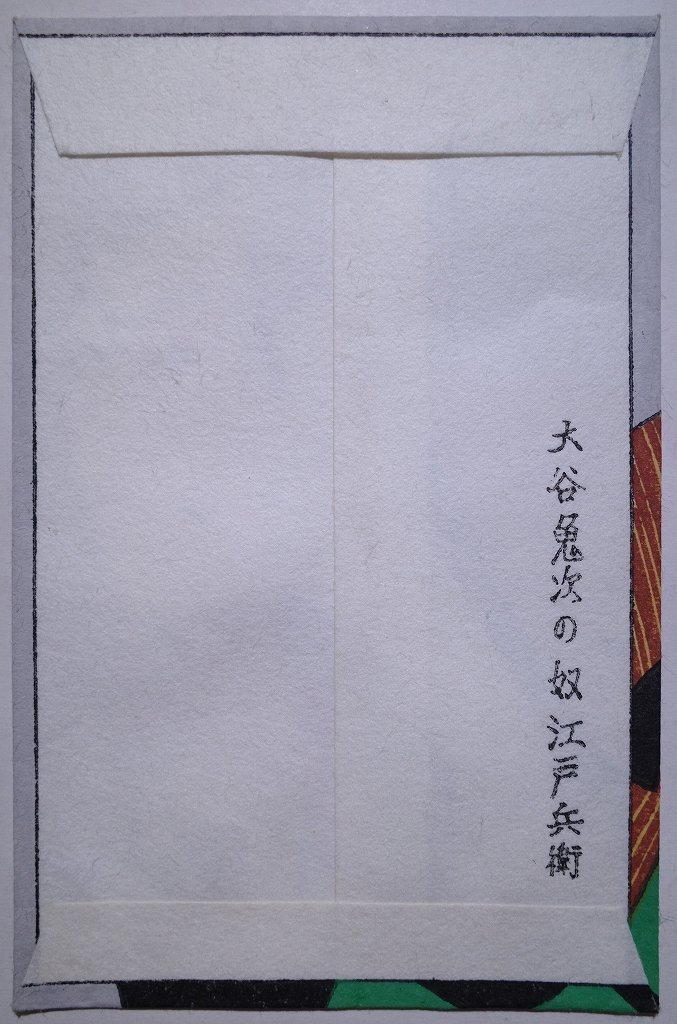 大谷鬼次の奴江戸兵衛